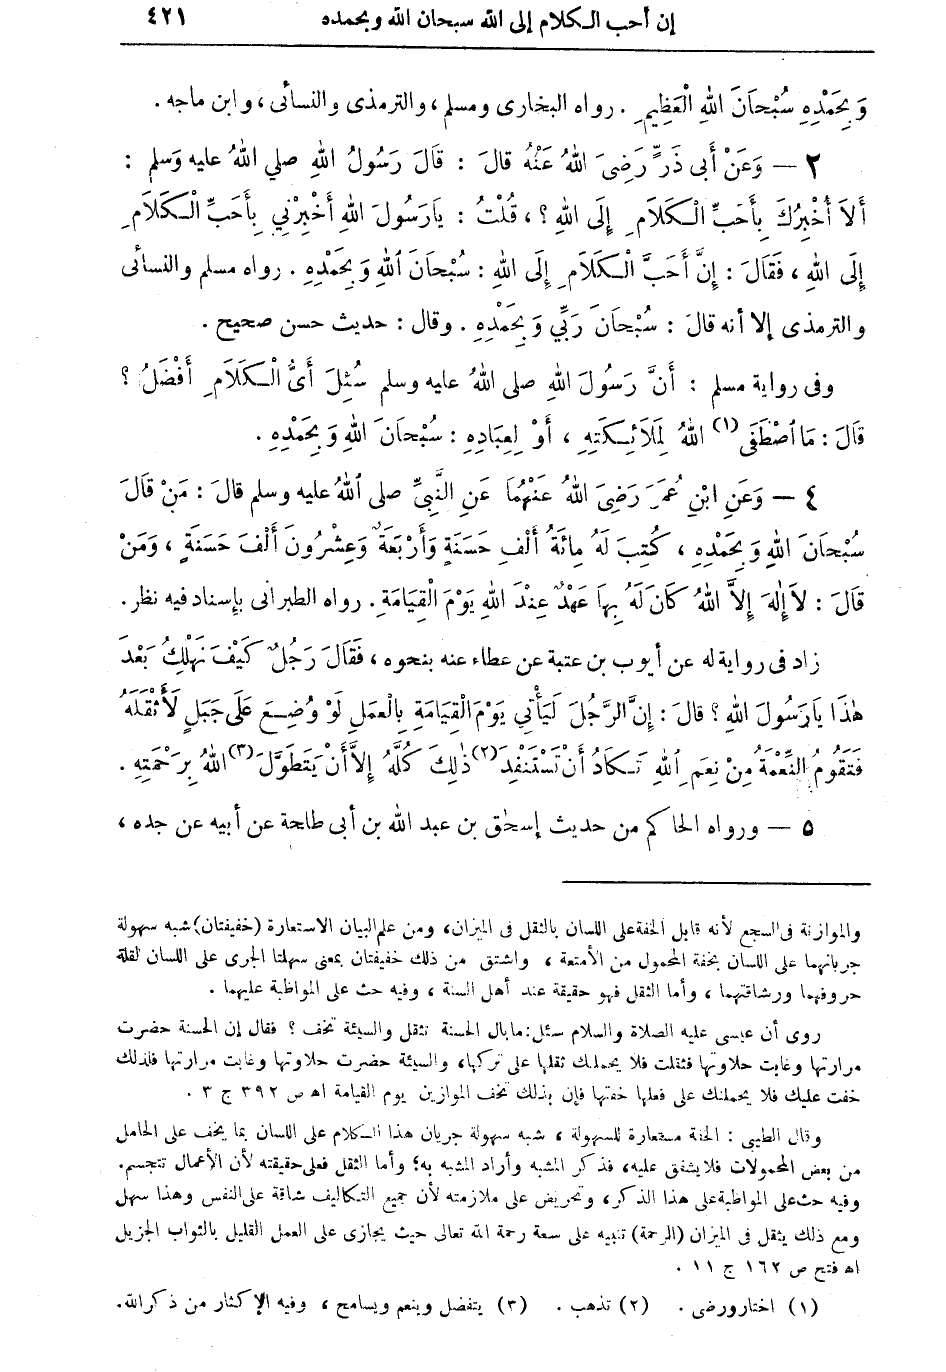 إن أحب الكلام إلى الله سبحان الله وبحمده ٤٢١
وَبِحَمْدِهِ سُبْحَانَ اللهِ الْعَظِيمِ . رواه البخارى ومسلم ، والترمذى والنسائى ، وابن ماجه .
٢ — وَعَنْ أَبِى ذَرٍّ رَضِىَ اللهُ عَنْهُ قالَ : قَالَ رَسُولُ اللهِ صلى اللهُ عليه وَسلم :
أَلاَ أُخْبِرُكَ بِأَحَبِّ الْكَلاَمِ إِلَى اللهِ ؟ ، قُلْتُ : يارَسُولَ اللهِ أَخْبِرْنِي بِأَحَبِّ الْكَلاَمِ
إِلَى اللهِ ، فَقَالَ : إِنَّ أَحَبَّ الْكَلاَمِ إِلَى اللهِ : سُبْحَانَ اللهِ وَبِحَمْدِهِ . رواه مسلم والنسائى
والترمذى إلا أنه قالَ : سُبْحَانَ رَبِّي وَبِحَمْدِهِ . وقال : حديث حسن صحيح .
وفى رواية مسلم : أَنَّ رَسُولَ اللهِ صلى اللهُ عليه وسلم سُئِلَ أَىُّ الْكَلاَمِ أَفْضَلُ ؟
قَالَ : مَا اصْطَفَى (١) اللهُ لِمَلاَئِكَتِهِ ، أَوْ لِعِبَادِهِ : سُبْحَانَ اللهِ وَبِحَمْدِهِ .
٤ — وَعَنِ ابْنِ عُمَرَ رَضِىَ اللهُ عَنْهُمَا عَنِ النَّبِيِّ صلى اللهُ عليه وسلم قالَ : مَنْ قَالَ
سُبْحَانَ اللهِ وَبِحَمْدِهِ ، كُتِبَ لَهُ مِائَةُ أَلْفِ حَسَنَةٍ وَأَرْبَعَةٌ وَعِشْرُونَ أَلْفَ حَسَنَةٍ ، وَمَنْ
قَالَ : لاَ إِلٰهَ إِلاَّ اللهُ كَانَ لَهُ بِهاَ عَهْدٌ عِنْدَ اللهِ يَوْمَ الْقِيَامَةِ . رواه الطبرانى بإسناد فيه نظر .
زاد فى رواية له عن أيوب بن عتبة عن عطاء عنه بنحوه ، فَقَالَ رَجُلٌ كَيْفَ نَهْلِكُ بَعْدَ
هٰذَا يا رَسُولَ اللهِ ؟ قالَ : إِنَّ الرَّجُلَ لَيَأْتِي يَوْمَ الْقِيَامَةِ بِالْعَمَلِ لَوْ وُضِعَ عَلَى جَبَلٍ لَأَثْقَلَهُ
فَتَقُومُ النِّعْمَةُ مِنْ نِعَمِ اللهِ تَكادُ أَنْ تَسْتَنْفِدَ (٢) ذٰلِكَ كُلَّهُ إِلاَّ أَنْ يَتَطَوَّلَ (٣) اللهُ بِرَحْمَتِهِ .
٥ — ورواه الحاكم من حديث إسحٰق بن عبد الله بن أبى طلحة عن أبيه عن جده ،
والموازنة فى السجع لأنه قابل الخفة على اللسان بالثقل فى الميزان ، ومن علم البيان الاستعارة (خفيفتان) شبه سهولة
جريانهما على اللسان بخفة المحمول من الأمتعة ، واشتق من ذلك خفيفتان بمعنى سهلتا الجرى على اللسان لقلة
حروفهما ورشاقتهما ، وأما الثقل فهو حقيقة عند أهل السنة ، وفيه حث على المواظبة عليهما .
روى أن عيسى عليه الصلاة والسلام سئل : ما بال الحسنة تثقل والسيئة تخف ؟ فقال إن الحسنة حضرت
مرارتها وغابت حلاوتها فثقلت فلا يحملنك ثقلها على تركها ، والسيئة حضرت حلاوتها وغابت مرارتها فلذلك
خفت عليك فلا يحملنك على فعلها خفتها فإن بذلك تخف الموازين يوم القيامة اه ص ٣٩٢ ج ٣ .
وقال الطيبى : الخفة مستعارة للسهولة ، شبه سهولة جريان هذا الكلام على اللسان بما يخف على الحامل
من بعض المحمولات فلا يشق عليه ، فذكر المشبه وأراد المشبه به ؛ وأما الثقل فعلى حقيقته لأن الأعمال تتجسم .
وفيه حث على المواظبة على هذا الذكر ، وتحريض على ملازمته لأن جميع التكاليف شاقة على النفس وهذا سهل
ومع ذلك يثقل فى الميزان (الرحمة) تنبيه على سعة رحمة الله تعالى حيث يجازى على العمل القليل بالثواب الجزيل
اه فتح ص ١٦٢ ج ١١ .
(١) اختار ورضى . (٢) تذهب . (٣) يتفضل وينعم ويسامح ، وفيه الإكثار من ذكر الله .